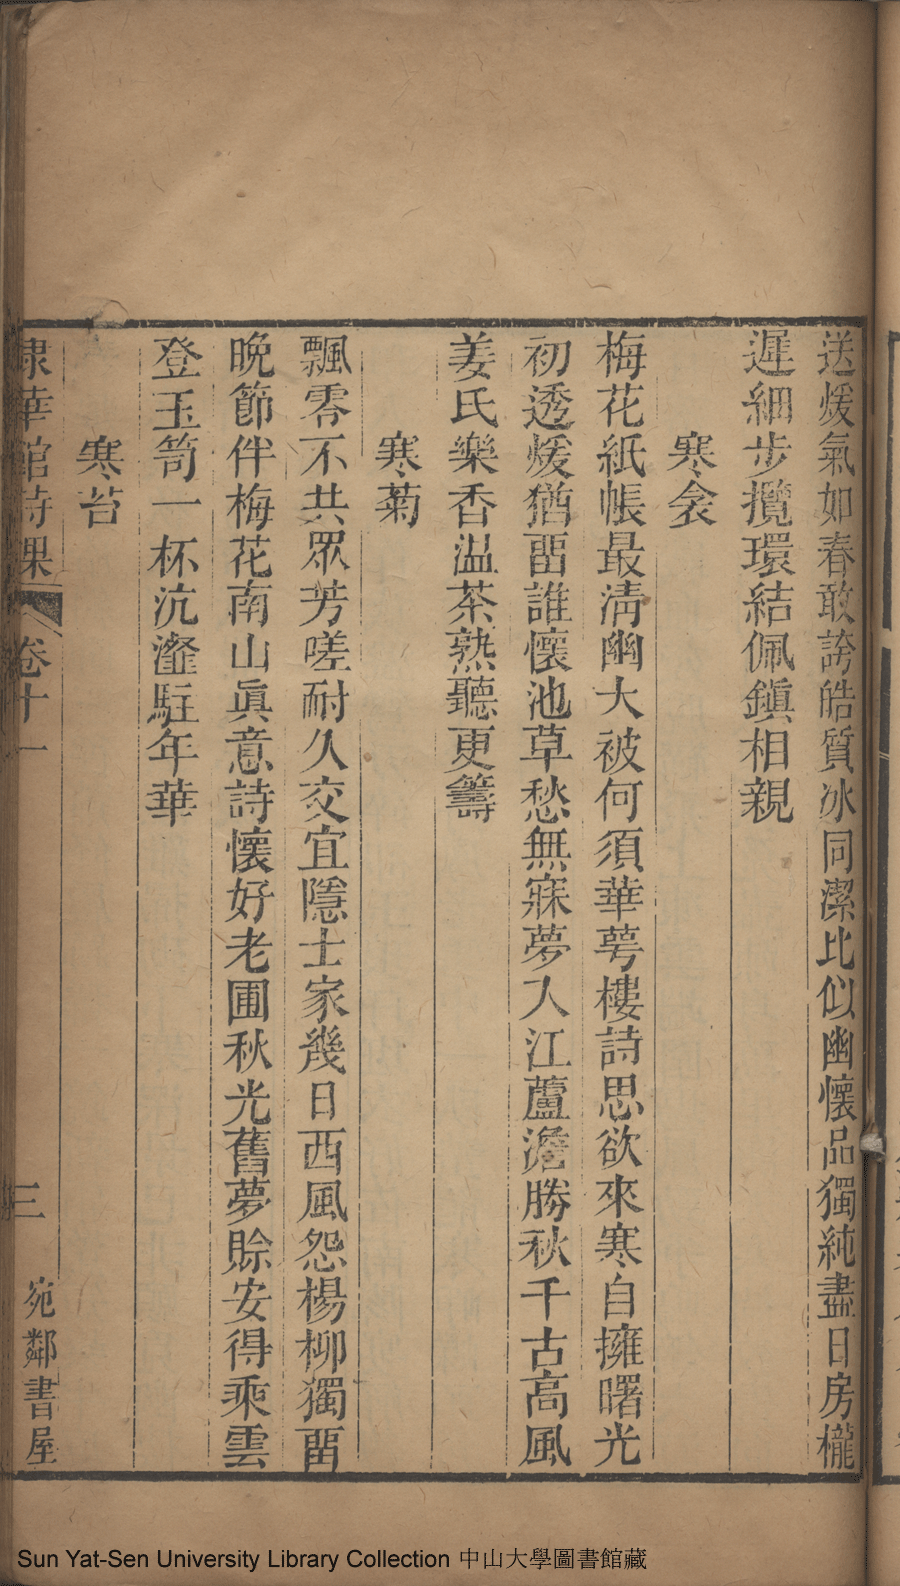 送煖氣如春敢誇皓質冰同潔比似幽懷品獨純盡日房櫳
遲細步攬環結佩鎮相親
寒衾
梅花紙帳最淸幽大被何須華萼樓詩思欲來寒自擁曙光
初透煖猶畱誰懷池草愁無寐夢入江蘆澹勝秋千古高風
姜氏樂香溫茶熟聽更籌
寒菊
飄零不共眾芳嗟耐久交宜隱士家幾日西風怨楊柳獨畱
晚節伴梅花南山眞意詩懷好老圃秋光舊夢賒安得乘雲
登玉笥一杯沆瀣駐年華
寒苔
棣華館詩課 卷十一 三 宛鄰書屋
Sun Yat-Sen University Library Collection 中山大學圖書館藏